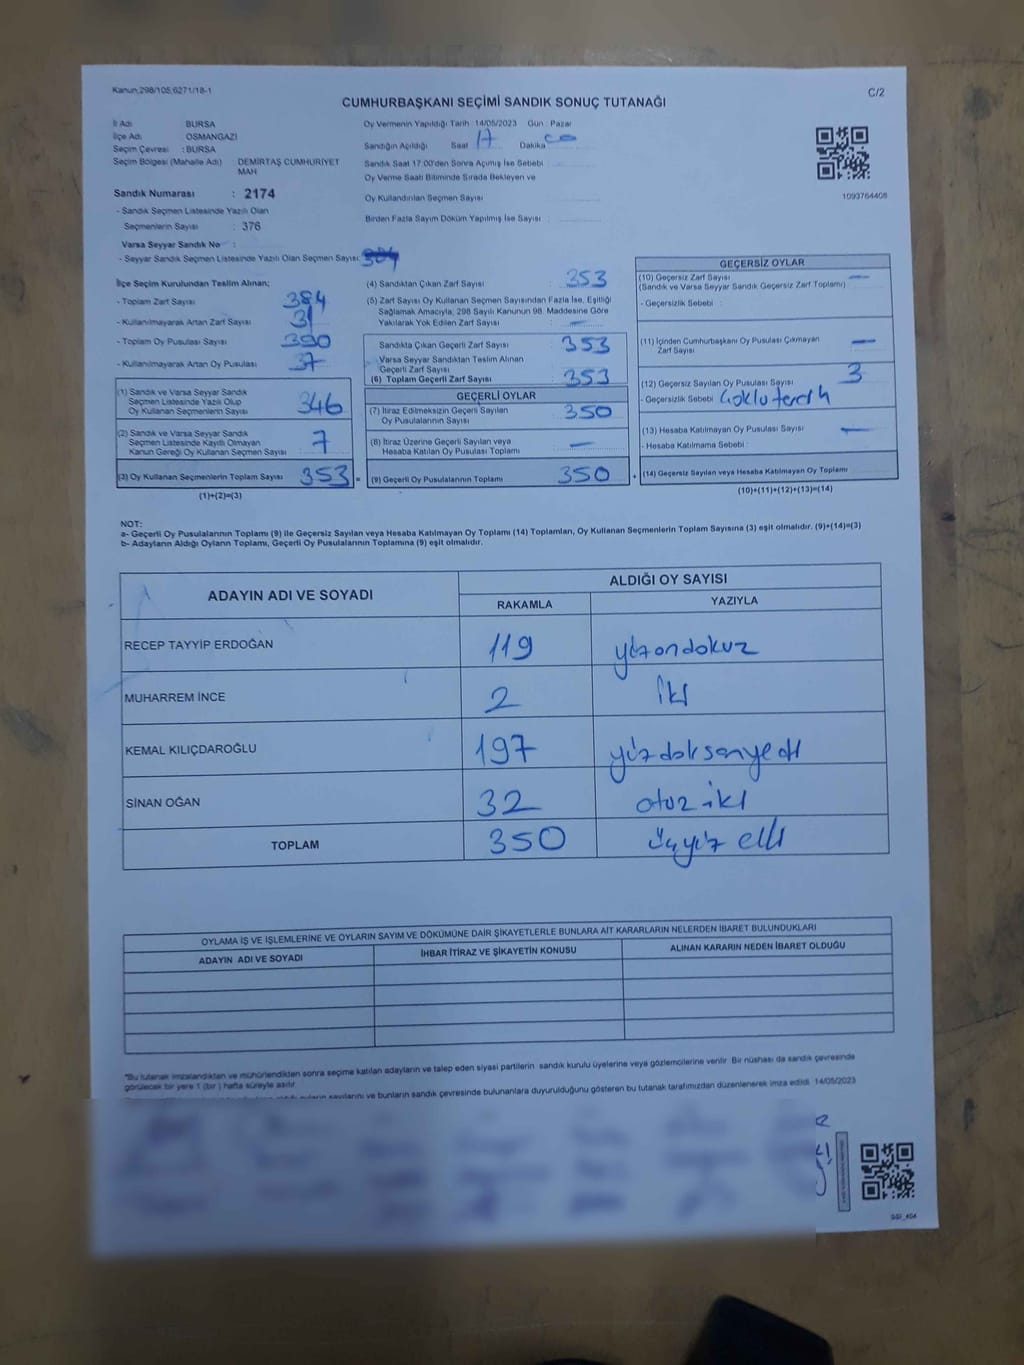 Kanun:298/105,6271/18-1
C/2
CUMHURBAŞKANI SEÇİMİ SANDIK SONUÇ TUTANAĞI
İl Adı : BURSA
İlçe Adı : OSMANGAZİ
Seçim Çevresi : BURSA
Seçim Bölgesi (Mahalle Adı) : DEMİRTAŞ CUMHURİYET MAH
Sandık Numarası : 2174
- Sandık Seçmen Listesinde Yazılı Olan
Seçmenlerin Sayısı : 376
Varsa Seyyar Sandık No :
- Seyyar Sandık Seçmen Listesinde Yazılı Olan Seçmen Sayısı:
Oy Vermenin Yapıldığı Tarih : 14/05/2023 Gün : Pazar
Sandığın Açıldığı Saat 17 Dakika 00
Sandık Saat 17:00'den Sonra Açılmış İse Sebebi :
Oy Verme Saati Bitiminde Sırada Bekleyen ve
Oy Kullandırılan Seçmen Sayısı :
Birden Fazla Sayım Döküm Yapılmış İse Sayısı :
1093764408
İlçe Seçim Kurulundan Teslim Alınan;
- Toplam Zarf Sayısı : 384
- Kullanılmayarak Artan Zarf Sayısı : 31
- Toplam Oy Pusulası Sayısı : 390
- Kullanılmayarak Artan Oy Pusulası : 37
(1) Sandık ve Varsa Seyyar Sandık
Seçmen Listesinde Yazılı Olup
Oy Kullanan Seçmenlerin Sayısı : 346
(2) Sandık ve Varsa Seyyar Sandık
Seçmen Listesinde Kayıtlı Olmayan
Kanun Gereği Oy Kullanan Seçmen Sayısı : 7
(3) Oy Kullanan Seçmenlerin Toplam Sayısı : 353 =
(1)+(2)=(3)
(4) Sandıktan Çıkan Zarf Sayısı : 353
(5) Zarf Sayısı Oy Kullanan Seçmen Sayısından Fazla İse, Eşitliği
Sağlamak Amacıyla; 298 Sayılı Kanunun 98. Maddesine Göre
Yakılarak Yok Edilen Zarf Sayısı : —
Sandıkta Çıkan Geçerli Zarf Sayısı : 353
Varsa Seyyar Sandıktan Teslim Alınan
Geçerli Zarf Sayısı :
(6) Toplam Geçerli Zarf Sayısı : 353
GEÇERLİ OYLAR
(7) İtiraz Edilmeksizin Geçerli Sayılan
Oy Pusulasının Sayısı : 350
(8) İtiraz Üzerine Geçerli Sayılan veya
Hesaba Katılan Oy Pusulası Toplamı : —
(9) Geçerli Oy Pusulalarının Toplamı : 350 +
GEÇERSİZ OYLAR
(10) Geçersiz Zarf Sayısı : —
(Sandık ve Varsa Seyyar Sandık Geçersiz Zarf Toplamı)
- Geçersizlik Sebebi :
(11) İçinden Cumhurbaşkanı Oy Pusulası Çıkmayan
Zarf Sayısı : —
(12) Geçersiz Sayılan Oy Pusulası Sayısı : 3
- Geçersizlik Sebebi : Çoklu tercih
(13) Hesaba Katılmayan Oy Pusulası Sayısı : —
- Hesaba Katılmama Sebebi :
(14) Geçersiz Sayılan veya Hesaba Katılmayan Oy Toplamı
(10)+(11)+(12)+(13)=(14)
NOT:
a- Geçerli Oy Pusulalarının Toplamı (9) ile Geçersiz Sayılan veya Hesaba Katılmayan Oy Toplamı (14) Toplamları, Oy Kullanan Seçmenlerin Toplam Sayısına (3) eşit olmalıdır. (9)+(14)=(3)
b- Adayların Aldığı Oyların Toplamı, Geçerli Oy Pusulalarının Toplamına (9) eşit olmalıdır.
ADAYIN ADI VE SOYADI
ALDIĞI OY SAYISI
RAKAMLA YAZIYLA
RECEP TAYYİP ERDOĞAN 119 yüzondokuz
MUHARREM İNCE 2 iki
KEMAL KILIÇDAROĞLU 197 yüzdoksanyedi
SİNAN OĞAN 32 otuz iki
TOPLAM 350 üçyüz elli
OYLAMA İŞ VE İŞLEMLERİNE VE OYLARIN SAYIM VE DÖKÜMÜNE DAİR ŞİKAYETLERLE BUNLARA AİT KARARLARIN NELERDEN İBARET BULUNDUKLARI
ADAYIN ADI VE SOYADI İHBAR İTİRAZ VE ŞİKAYETİN KONUSU ALINAN KARARIN NEDEN İBARET OLDUĞU
*Bu tutanak imzalandıktan ve mühürlendikten sonra seçime katılan adayların ve talep eden siyasi partilerin sandık kurulu üyelerine veya gözlemcilerine verilir. Bir nüshası da sandık çevresinde
görülecek bir yere 1 (bir) hafta süreyle asılır.
sayılarını ve bunların sandık çevresinde bulunanlara duyurulduğunu gösteren bu tutanak tarafımızdan düzenlenerek imza edildi. 14/05/2023